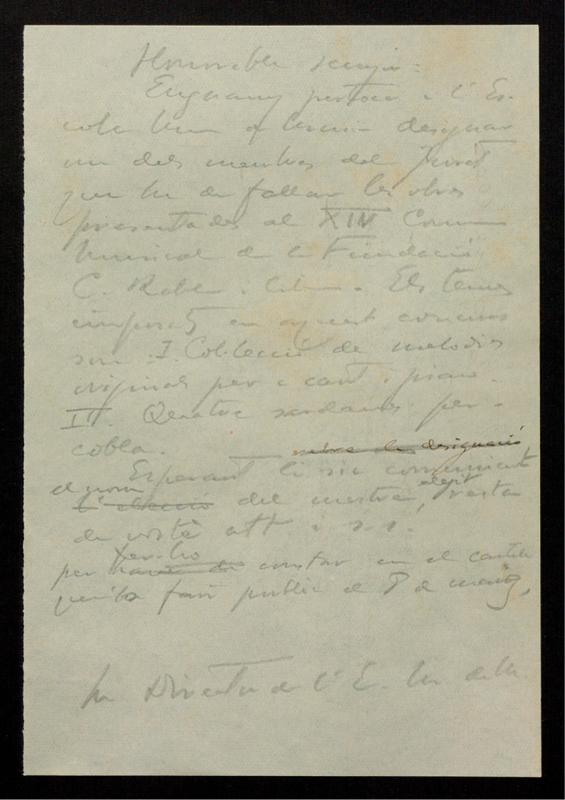 Honorable senyor:
Enguany pertoca a l'Es-
cola Mun. de Música designar
un dels membres del Jurat
que ha de fallar les obres
presentades al XIV Concurs
Musical de la Fundació
C. Rabell. Els temes
imposats en aquest concurs
son: I. Col·lecció de melodies
originals per a cant i piano.
II. Quatre sardanes per a
cobla.
designació
Esperant li sia comunicat
el nom l'elecció del mestre elegit, resta
de vostè att. i s. s.
per fer-ho constar en el cartell
que es farà públic el 8 de maig,
Sr. Director de l'E. M. de M.